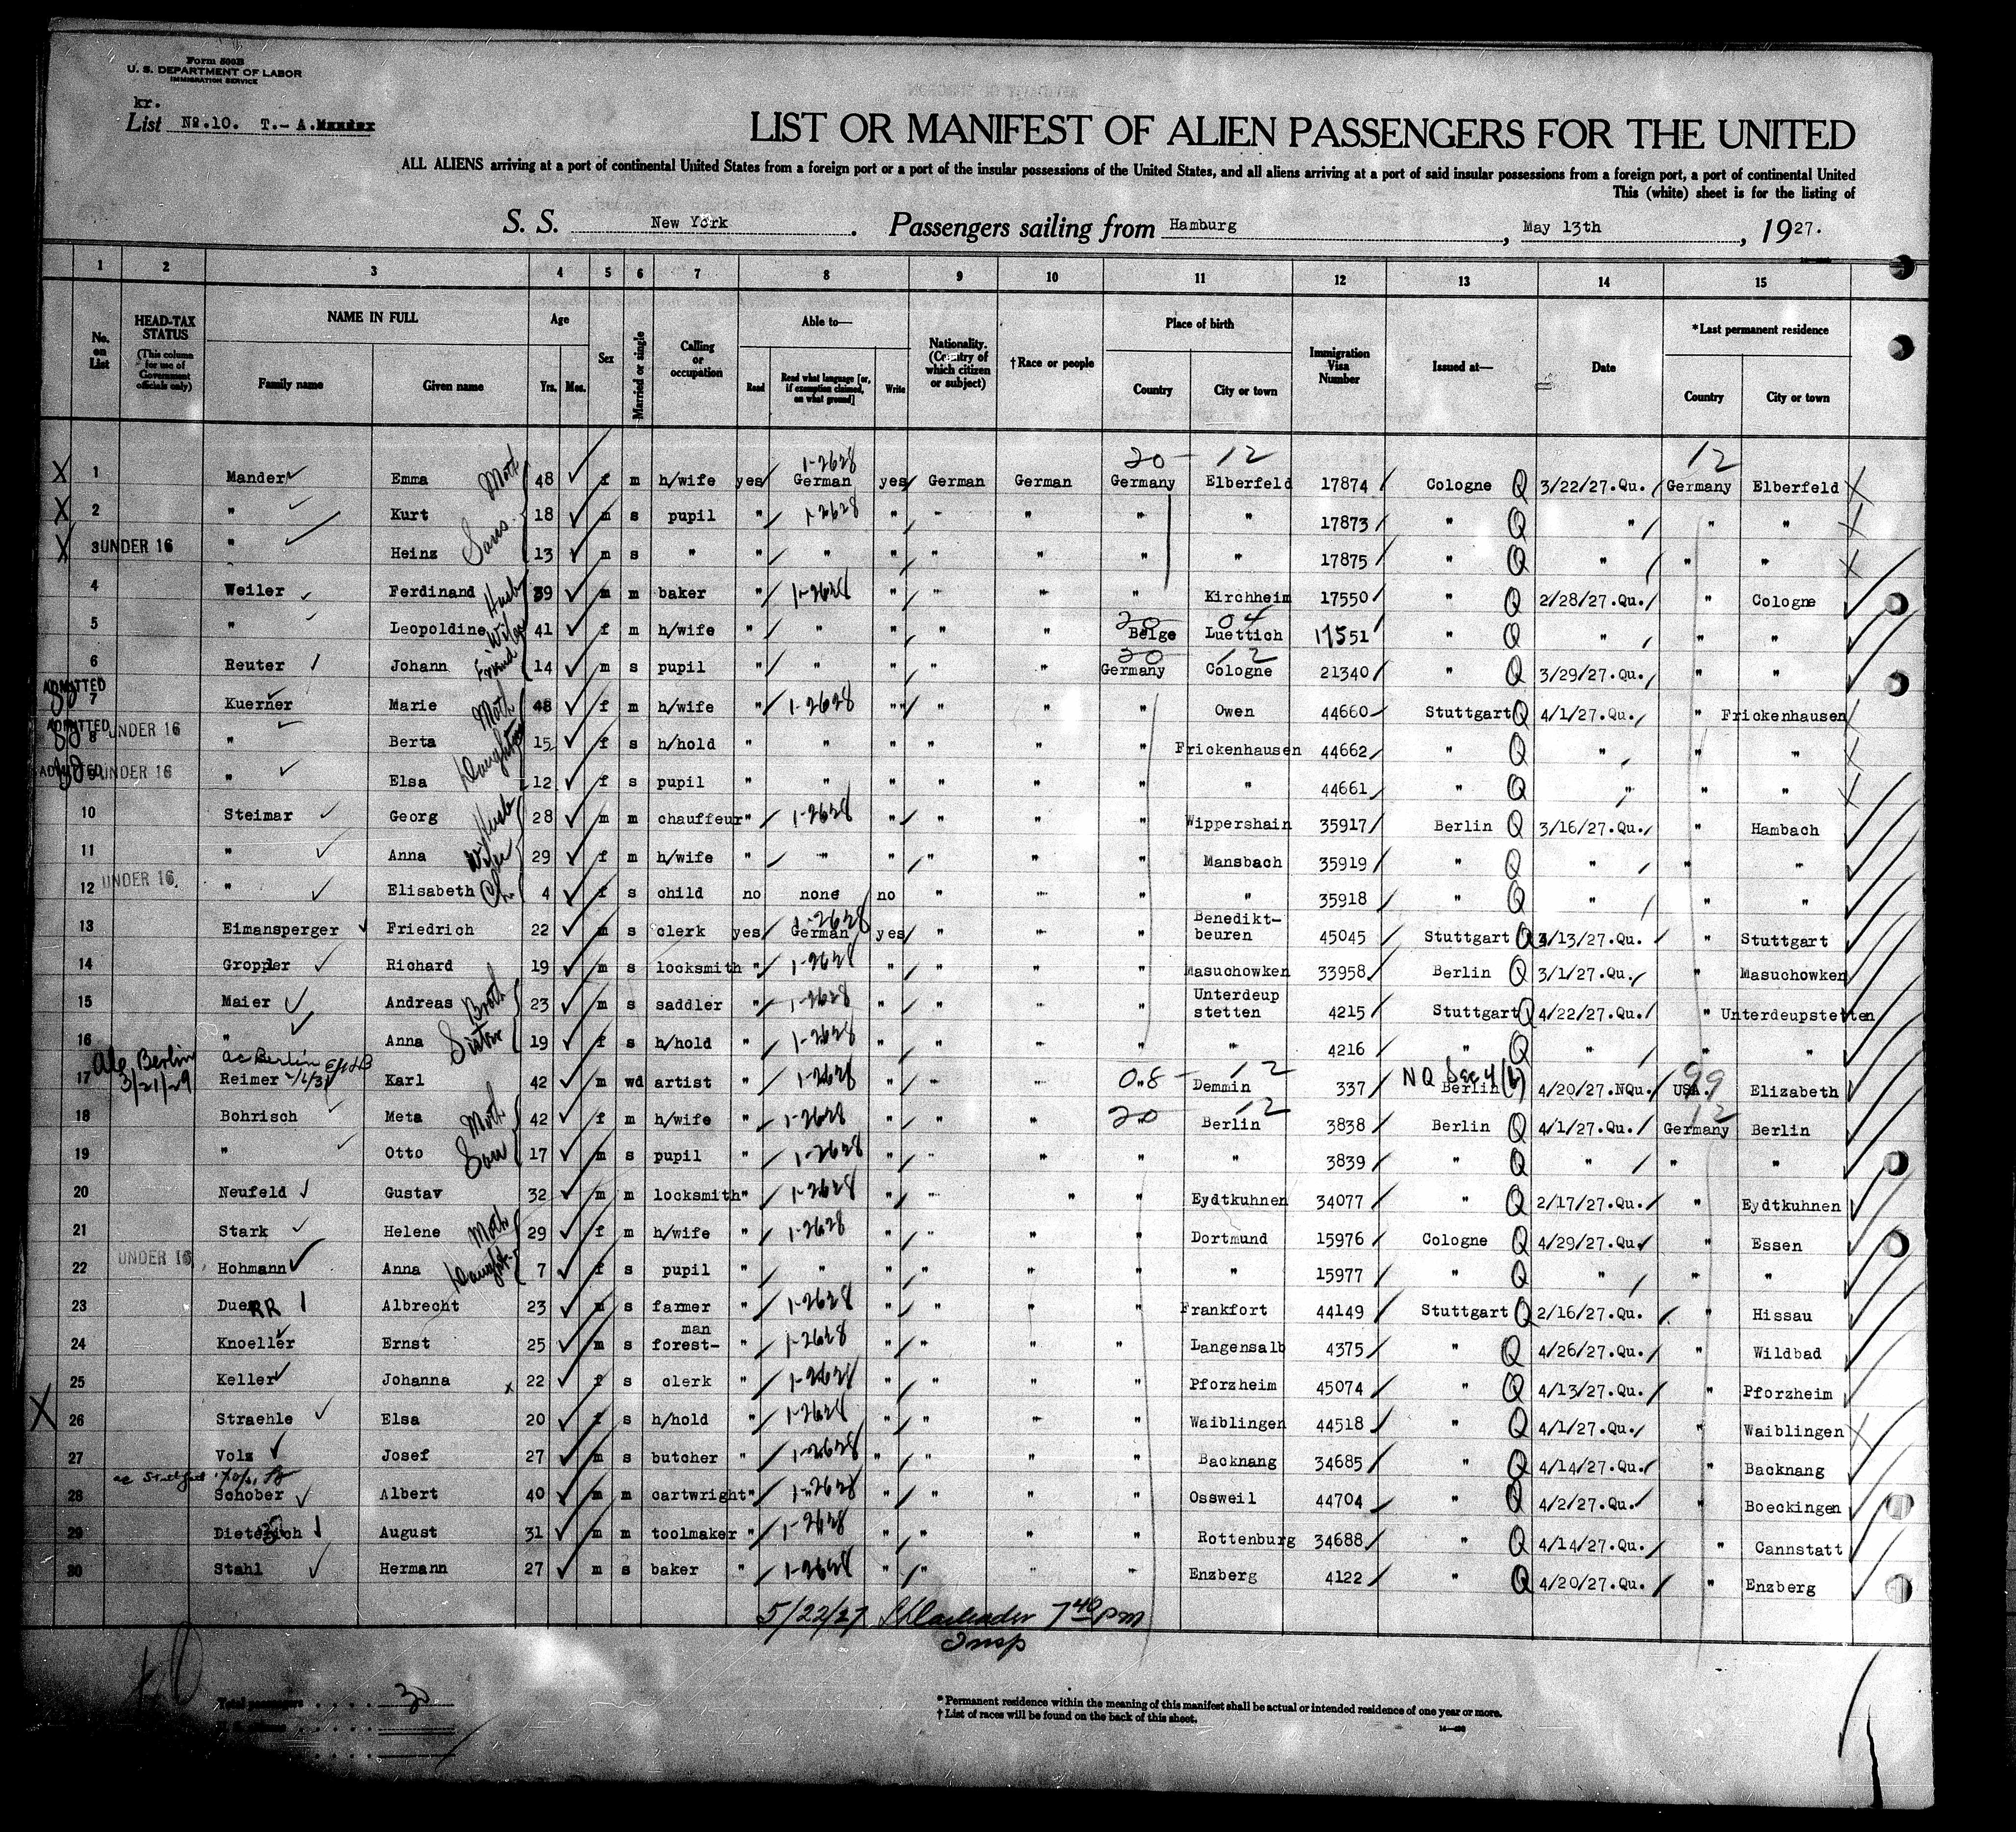 Form 500B
U. S. DEPARTMENT OF LABOR
IMMIGRATION SERVICE
kr.
List No.10. T.- A.Mander
LIST OR MANIFEST OF ALIEN PASSENGERS FOR THE UNITED
ALL ALIENS arriving at a port of continental United States from a foreign port or a port of the insular possessions of the United States, and all aliens arriving at a port of said insular possessions from a foreign port, a port of continental United
This (white) sheet is for the listing of
S. S. New York. Passengers sailing from Hamburg, May 13th, 1927.
1 2 3 4 5 6 7 8 9 10 11 12 13 14 15
No. on List
HEAD-TAX STATUS
(This column for use of Government officials only)
NAME IN FULL
Family name Given name
Age
Yrs. Mos.
Sex
Married or single
Calling or occupation
Able to—
Read
Read what language [or, if exemption claimed, on what ground]
Write
Nationality. (Country of which citizen or subject)
†Race or people
Place of birth
Country City or town
Immigration Visa Number
Issued at—
Date
*Last permanent residence
Country City or town
1-2628 20 - 12 12
X 1 Mander Emma Moth 48 f m h/wife yes German yes German German Germany Elberfeld 17874 Cologne Q 3/22/27.Qu. Germany Elberfeld
X 2 " Kurt Sons 18 m s pupil " 1-2628 " " " " " 17873 " Q " " "
X 3 UNDER 16 " Heinz 13 m s " " " " " " " " 17875 " Q " " "
4 Weiler Ferdinand Husb 39 m m baker " 1-2628 " " " " Kirchheim 17550 " Q 2/28/27.Qu. " Cologne
20 04
5 " Leopoldine Wife 41 f m h/wife " " " " " Belge Luettich 17551 " Q " " "
20 12
6 Reuter Johann Friend 14 m s pupil " " " " " Germany Cologne 21340 " Q 3/29/27.Qu. " "
ADMITTED
7 Kuerner Marie Moth 48 f m h/wife " 1-2628 " " " " Owen 44660 Stuttgart Q 4/1/27.Qu. " Frickenhausen
ADMITTED
8 UNDER 16 " Berta Daughters 15 f s h/hold " " " " " " Frickenhausen 44662 " Q " " "
ADMITTED
9 UNDER 16 " Elsa 12 f s pupil " " " " " " " 44661 " Q " " "
10 Steimar Georg Husb 28 m m chauffeur " 1-2628 " " " " Wippershain 35917 Berlin Q 3/16/27.Qu. " Hambach
11 " Anna Wife 29 f m h/wife " " " " " " Mansbach 35919 " Q " " "
12 UNDER 16 " Elisabeth Ch. 4 f s child no none no " " " " 35918 " Q " " "
1-2628 Benedikt-
13 Eimansperger Friedrich 22 m s clerk yes German yes " " " beuren 45045 Stuttgart Q 4/13/27.Qu. " Stuttgart
14 Groppler Richard 19 m s locksmith " 1-2628 " " " " Masuchowken 33958 Berlin Q 3/1/27.Qu. " Masuchowken
Unterdeup
15 Maier Andreas Broth 23 m s saddler " 1-2628 " " " " stetten 4215 Stuttgart Q 4/22/27.Qu. " Unterdeupstetten
16 " Anna Sister 19 f s h/hold " 1-2628 " " " " " 4216 " Q " " "
Berlin 3/21/29
ac Berlin
08 - 12 NQ Sec 4(b) 99
17 Reimer Karl 42 m wd artist " 1-2628 " " " " Demmin 337 Berlin 4/20/27.NQu. USA. Elizabeth
20 12 12
18 Bohrisch Meta Moth 42 f m h/wife " 1-2628 " " " " Berlin 3838 Berlin Q 4/1/27.Qu. Germany Berlin
19 " Otto Son 17 m s pupil " 1-2628 " " " " " 3839 " Q " " "
20 Neufeld Gustav 32 m m locksmith " 1-2628 " " " " Eydtkuhnen 34077 " Q 2/17/27.Qu. " Eydtkuhnen
21 Stark Helene Moth 29 f m h/wife " 1-2628 " " " " Dortmund 15976 Cologne Q 4/29/27.Qu. " Essen
22 UNDER 16 Hohmann Anna Daught. 7 f s pupil " " " " " " " 15977 " Q " " "
23 DueRR Albrecht 23 m s farmer " 1-2628 " " " " Frankfort 44149 Stuttgart Q 2/16/27.Qu. " Hissau
man
24 Knoeller Ernst 25 m s forest- " 1-2628 " " " " Langensalb 4375 " Q 4/26/27.Qu. " Wildbad
25 Keller Johanna x 22 f s clerk " 1-2628 " " " " Pforzheim 45074 " Q 4/13/27.Qu. " Pforzheim
X 26 Straehle Elsa 20 f s h/hold " 1-2628 " " " " Waiblingen 44518 " Q 4/1/27.Qu. " Waiblingen
27 Volz Josef 27 m s butcher " 1-2628 " " " " Backnang 34685 " Q 4/14/27.Qu. " Backnang
28 Schober Albert 40 m m cartwright " 1-2628 " " " " Ossweil 44704 " Q 4/2/27.Qu. " Boeckingen
29 Dieterich August 31 m m toolmaker " 1-2628 " " " " Rottenburg 34688 " Q 4/14/27.Qu. " Cannstatt
30 Stahl Hermann 27 m s baker " 1-2628 " " " " Enzberg 4122 " Q 4/20/27.Qu. " Enzberg
5/22/27 7 40 pm
Insp
Total passengers . . . . 30
* Permanent residence within the meaning of this manifest shall be actual or intended residence of one year or more.
† List of races will be found on the back of this sheet.